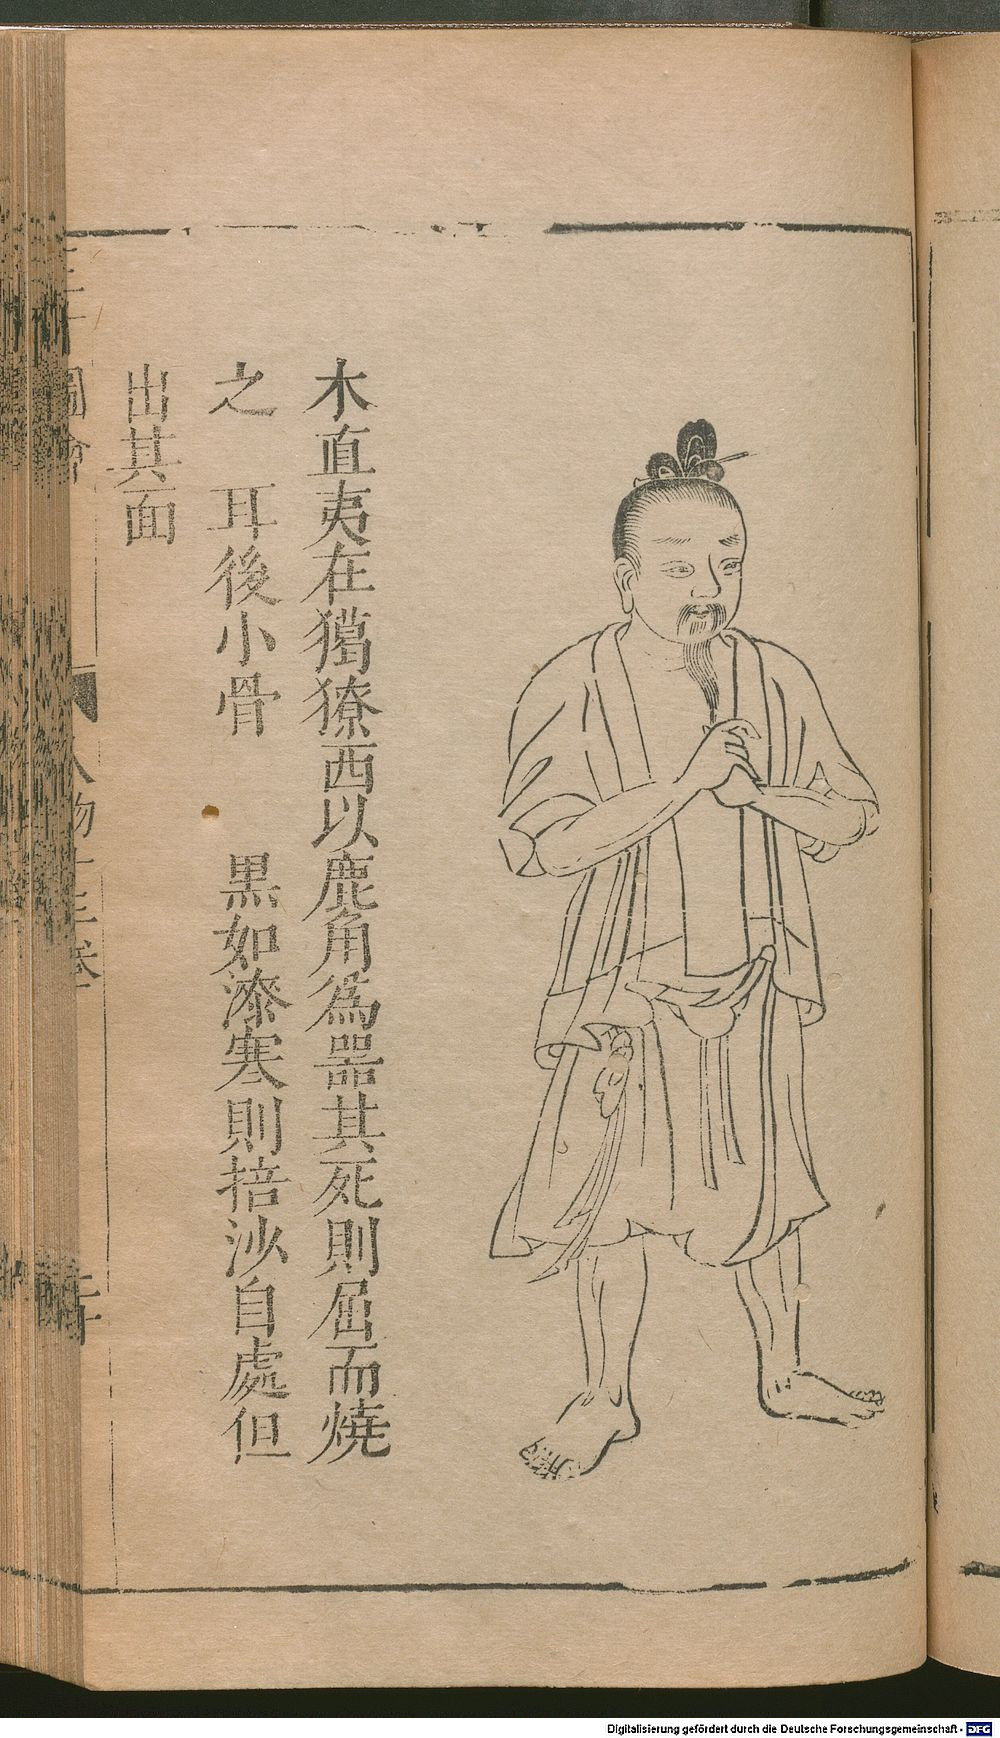 木直夷在獦獠西以鹿角為器其死則屈而燒
之　耳後小骨　　黒如漆寒則掊沙自處但
出其面
圖會
人物十三卷
Digitalisierung gefördert durch die Deutsche Forschungsgemeinschaft - DFG